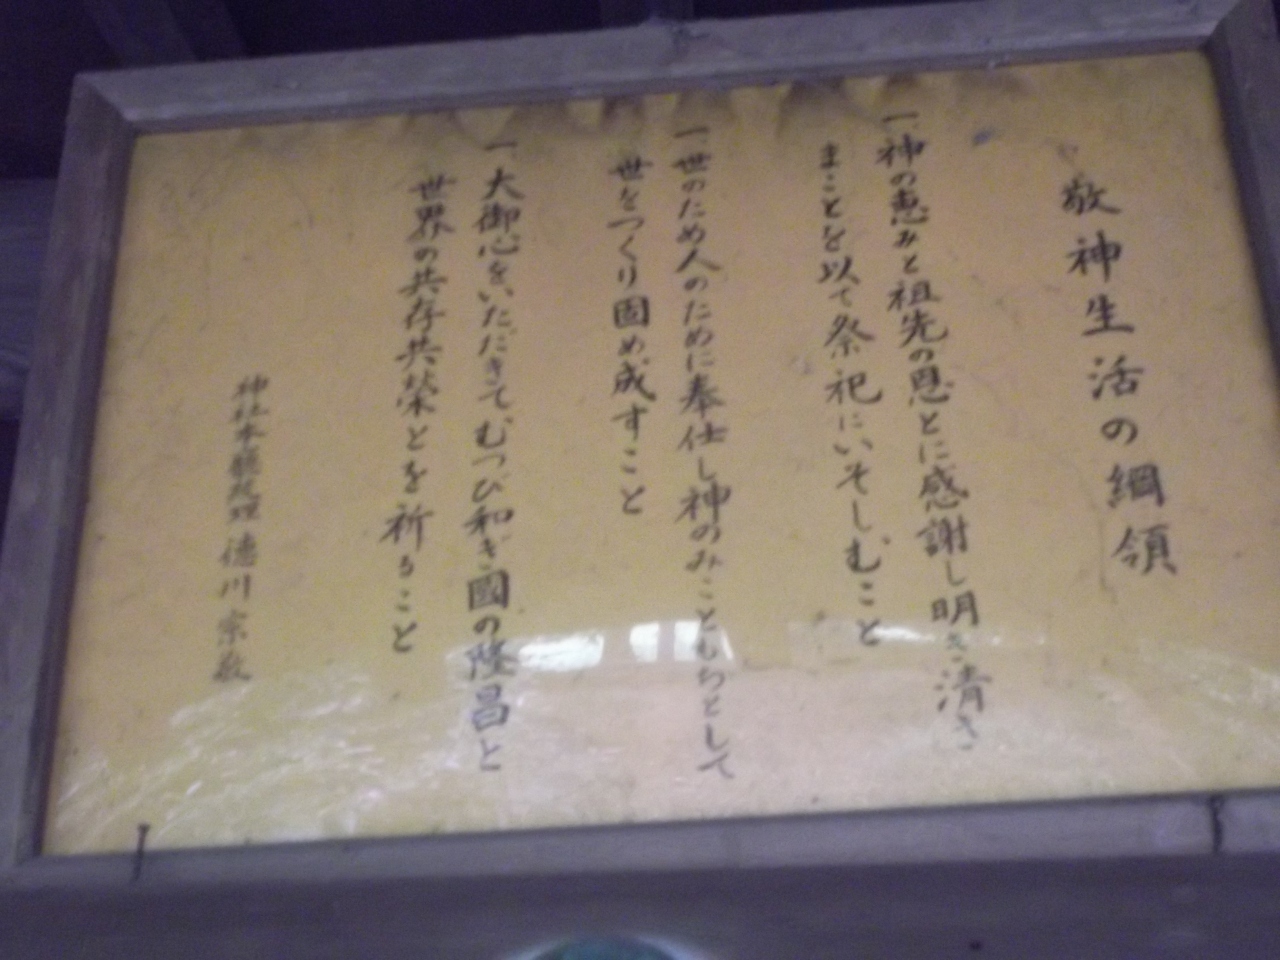 敬神生活の綱領
一、神の恵みと祖先の恩とに感謝し明き清き
まことを以て祭祀にいそしむこと
一、世のため人のために奉仕し神のみこともちとして
世をつくり固め成すこと
一、大御心をいただきてむつび和ぎ國の隆昌と
世界の共存共栄とを祈ること
神社本廳統理 徳川宗敬